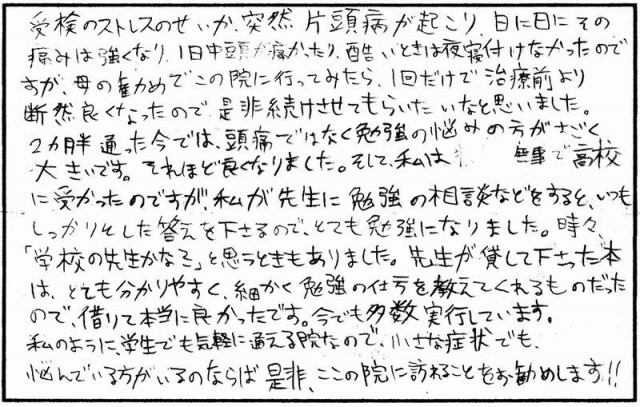 受検のストレスのせいか、突然片頭病が起こり、日に日にその
痛みは強くなり、1日中頭が痛かったり、酷いときは夜寝付けなかったので
すが、母の勧めでこの院に行ってみたら、1回だけで治療前より
断然良くなったので是非続けさせてもらいたいなと思いました。
2ヵ月半通った今では、頭痛ではなく勉強の悩みの方がすごく
大きいです。それほど良くなりました。そして、私は 無事で高校
に受かったのですが、私が先生に勉強の相談などをすると、いつも
しっかりとした答えを下さるので、とても勉強になりました。時々、
「学校の先生かなぁ」と思うときもありました。先生が貸して下さった本
は、とても分かりやすく、細かく勉強の仕方を教えてくれるものだった
ので、借りて本当に良かったです。今でも多数実行しています。
私のように、学生でも気軽に通える院なので、小さな症状でも、
悩んでいる方がいるのならば是非、ここの院に訪れることをお勧めします!!